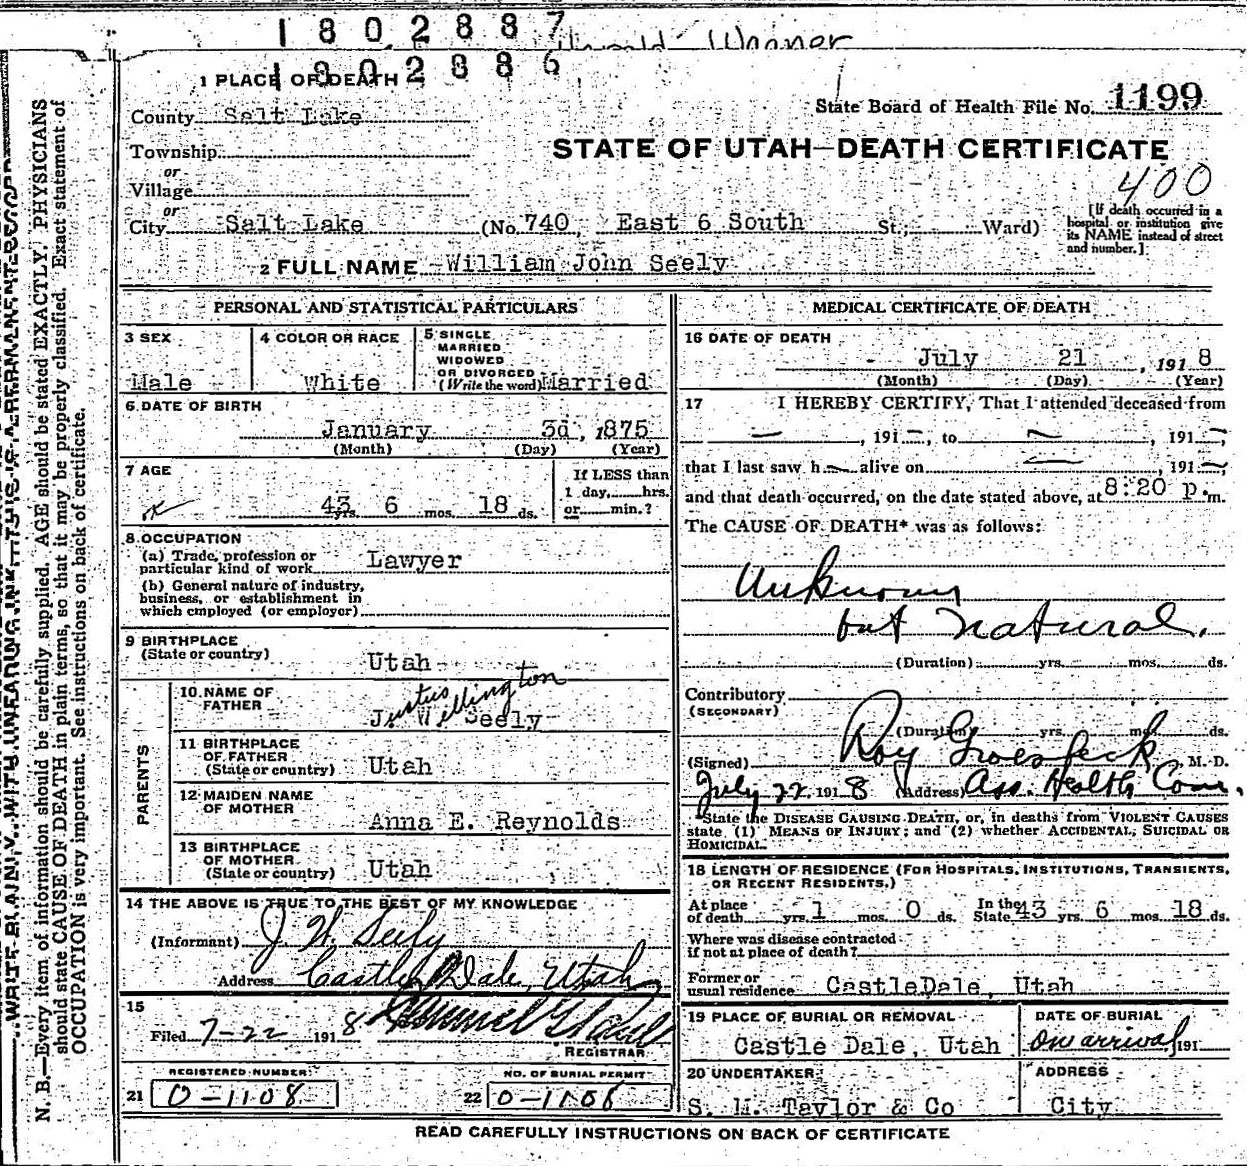 1802887
Harold Wagner
1802886
1 PLACE OF DEATH
State Board of Health File No. 1199
County Salt Lake
STATE OF UTAH—DEATH CERTIFICATE
Township
or
Village
400
or
City Salt Lake (No. 740, East 6 South St.; Ward)
[If death occurred in a hospital or institution give its NAME instead of street and number.]
2 FULL NAME William John Seely
PERSONAL AND STATISTICAL PARTICULARS
3 SEX
Male
4 COLOR OR RACE
White
5 SINGLE
MARRIED
WIDOWED
OR DIVORCED
(Write the word) Married
6 DATE OF BIRTH
January 3d, 1875
(Month) (Day) (Year)
7 AGE
43 yrs. 6 mos. 18 ds.
If LESS than
1 day, hrs.
or min.?
8 OCCUPATION
(a) Trade, profession or
particular kind of work Lawyer
(b) General nature of industry,
business, or establishment in
which employed (or employer)
9 BIRTHPLACE
(State or country) Utah
PARENTS
10 NAME OF
FATHER
Justus Wellington
Seely
11 BIRTHPLACE
OF FATHER
(State or country) Utah
12 MAIDEN NAME
OF MOTHER
Anna E. Reynolds
13 BIRTHPLACE
OF MOTHER
(State or country) Utah
14 THE ABOVE IS TRUE TO THE BEST OF MY KNOWLEDGE
(Informant) J. W. Seely
Address Castle Dale, Utah
15
Filed 7-22 1918
REGISTRAR
REGISTERED NUMBER
21 0-1108
NO. OF BURIAL PERMIT
22 0-1108
MEDICAL CERTIFICATE OF DEATH
16 DATE OF DEATH
July 21, 1918
(Month) (Day) (Year)
17 I HEREBY CERTIFY, That I attended deceased from
—, 191—, to —, 191—,
that I last saw h— alive on —, 191—,
and that death occurred, on the date stated above, at 8:20 p.m.
The CAUSE OF DEATH* was as follows:
Unknown
but Natural.
(Duration) yrs. mos. ds.
Contributory
(SECONDARY)
(Duration) yrs. mos. ds.
(Signed) Roy Groesbeck, M. D.
July 22 1918 (Address) Ass. Health Com.
*State the DISEASE CAUSING DEATH, or, in deaths from VIOLENT CAUSES
state (1) MEANS OF INJURY; and (2) whether ACCIDENTAL, SUICIDAL OR
HOMICIDAL.
18 LENGTH OF RESIDENCE (FOR HOSPITALS, INSTITUTIONS, TRANSIENTS,
OR RECENT RESIDENTS.)
At place
of death yrs. 1 mos. 0 ds. In the
State 43 yrs. 6 mos. 18 ds.
Where was disease contracted
if not at place of death?
Former or
usual residence CastleDale, Utah
19 PLACE OF BURIAL OR REMOVAL
Castle Dale, Utah
DATE OF BURIAL
On arrival 191
20 UNDERTAKER
S. M. Taylor & Co
ADDRESS
City
READ CAREFULLY INSTRUCTIONS ON BACK OF CERTIFICATE
WRITE PLAINLY, WITH UNFADING INK—THIS IS A PERMANENT RECORD
N. B.—Every item of information should be carefully supplied. AGE should be stated EXACTLY. PHYSICIANS
should state CAUSE OF DEATH in plain terms, so that it may be properly classified. Exact statement of
OCCUPATION is very important. See instructions on back of certificate.